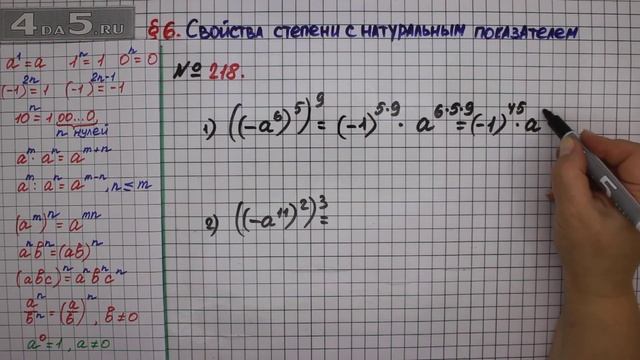 4DA5.RU
§ 6. Свойства степени с натуральным показателем
№ 218.
a¹ = a 1ⁿ = 1 0ⁿ = 0
(-1)²ⁿ = 1 (-1)²ⁿ⁻¹ = -1
10ⁿ = 1 00...0,
n нулей
aᵐ · aⁿ = aᵐ⁺ⁿ
aᵐ : aⁿ = aᵐ⁻ⁿ, n ≤ m
(aᵐ)ⁿ = aᵐⁿ
aⁿbⁿ = (ab)ⁿ
(abc)ⁿ = aⁿbⁿcⁿ
aⁿ/bⁿ = (a/b)ⁿ, b ≠ 0
a⁰ = 1, a ≠ 0
1) ((-a⁶)⁵)⁹ = (-1)⁵·⁹ · a⁶·⁵·⁹ = (-1)⁴⁵ · a
2) ((-a¹¹)²)³ =